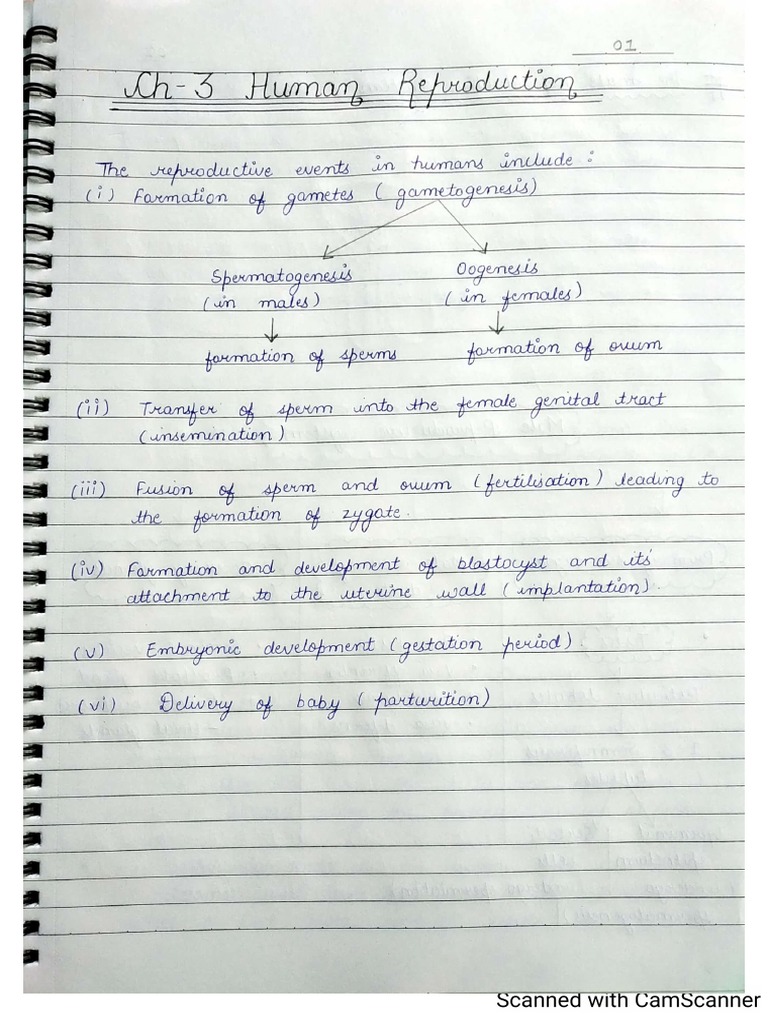 01
Ch-3 Human Reproduction
The reproductive events in humans include :
(i) Formation of gametes (gametogenesis)
Spermatogenesis Oogenesis
(in males) (in females)
formation of sperms formation of ovum
(ii) Transfer of sperm into the female genital tract
(insemination)
(iii) Fusion of sperm and ovum (fertilisation) leading to
the formation of zygate.
(iv) Formation and development of blastocyst and its
attachment to the uterine wall (implantation).
(v) Embryonic development (gestation period).
(vi) Delivery of baby (parturition)
Scanned with CamScanner